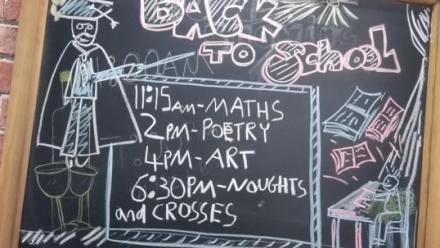 BACK
TO SCHOOL
11:15AM-MATHS
2PM-POETRY
4PM-ART
6:30PM-NOUGHTS
and CROSSES